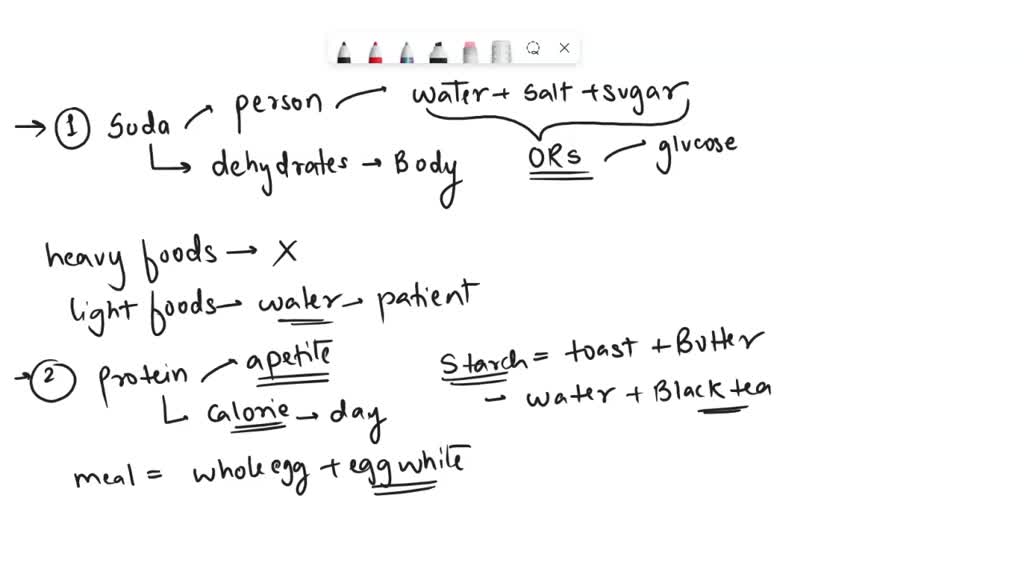 → ① Suda person water + salt + sugar
↳ dehydrates → Body ORs glucose
heavy foods → X
light foods → water → patient
→ ② protein apetite starch = toast + Butter
↳ calorie → day → water + Black tea
meal = whole egg + egg white